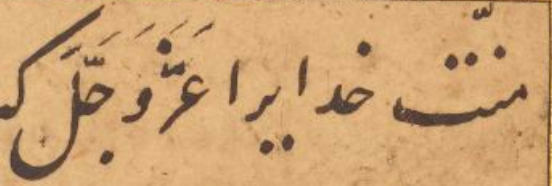 منّت خدایرا عَزَّ وَ جَلَّ که